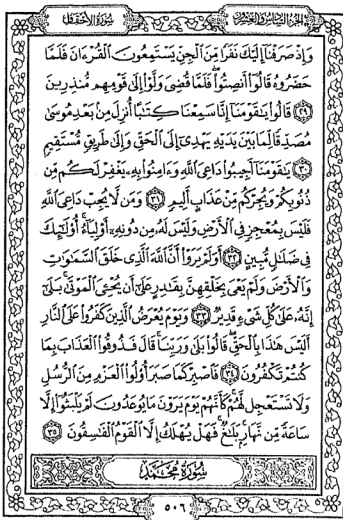 الجزء السادس والعشرون
سورة الأحقاف
وَإِذْ صَرَفْنَا إِلَيْكَ نَفَرًا مِّنَ الْجِنِّ يَسْتَمِعُونَ الْقُرْءَانَ فَلَمَّا
حَضَرُوهُ قَالُوا أَنصِتُوا فَلَمَّا قُضِيَ وَلَّوْا إِلَىٰ قَوْمِهِم مُّنذِرِينَ
٢٩ قَالُوا يَٰقَوْمَنَا إِنَّا سَمِعْنَا كِتَٰبًا أُنزِلَ مِن بَعْدِ مُوسَىٰ
مُصَدِّقًا لِّمَا بَيْنَ يَدَيْهِ يَهْدِي إِلَى الْحَقِّ وَإِلَىٰ طَرِيقٍ مُّسْتَقِيمٍ
٣٠ يَٰقَوْمَنَا أَجِيبُوا دَاعِيَ اللَّهِ وَءَامِنُوا بِهِ يَغْفِرْ لَكُم مِّن
ذُنُوبِكُمْ وَيُجِرْكُم مِّنْ عَذَابٍ أَلِيمٍ ٣١ وَمَن لَّا يُجِبْ دَاعِيَ اللَّهِ
فَلَيْسَ بِمُعْجِزٍ فِي الْأَرْضِ وَلَيْسَ لَهُ مِن دُونِهِ أَوْلِيَاءُ أُولَٰئِكَ
فِي ضَلَٰلٍ مُّبِينٍ ٣٢ أَوَلَمْ يَرَوْا أَنَّ اللَّهَ الَّذِي خَلَقَ السَّمَٰوَٰتِ
وَالْأَرْضَ وَلَمْ يَعْيَ بِخَلْقِهِنَّ بِقَٰدِرٍ عَلَىٰ أَن يُحْيِيَ الْمَوْتَىٰ بَلَىٰ
إِنَّهُ عَلَىٰ كُلِّ شَيْءٍ قَدِيرٌ ٣٣ وَيَوْمَ يُعْرَضُ الَّذِينَ كَفَرُوا عَلَى النَّارِ
أَلَيْسَ هَٰذَا بِالْحَقِّ قَالُوا بَلَىٰ وَرَبِّنَا قَالَ فَذُوقُوا الْعَذَابَ بِمَا
كُنتُمْ تَكْفُرُونَ ٣٤ فَاصْبِرْ كَمَا صَبَرَ أُولُوا الْعَزْمِ مِنَ الرُّسُلِ
وَلَا تَسْتَعْجِل لَّهُمْ كَأَنَّهُمْ يَوْمَ يَرَوْنَ مَا يُوعَدُونَ لَمْ يَلْبَثُوا إِلَّا
سَاعَةً مِّن نَّهَارٍ بَلَٰغٌ فَهَلْ يُهْلَكُ إِلَّا الْقَوْمُ الْفَٰسِقُونَ ٣٥
سُورَةُ مُحَمَّدٍ
٥٠٦